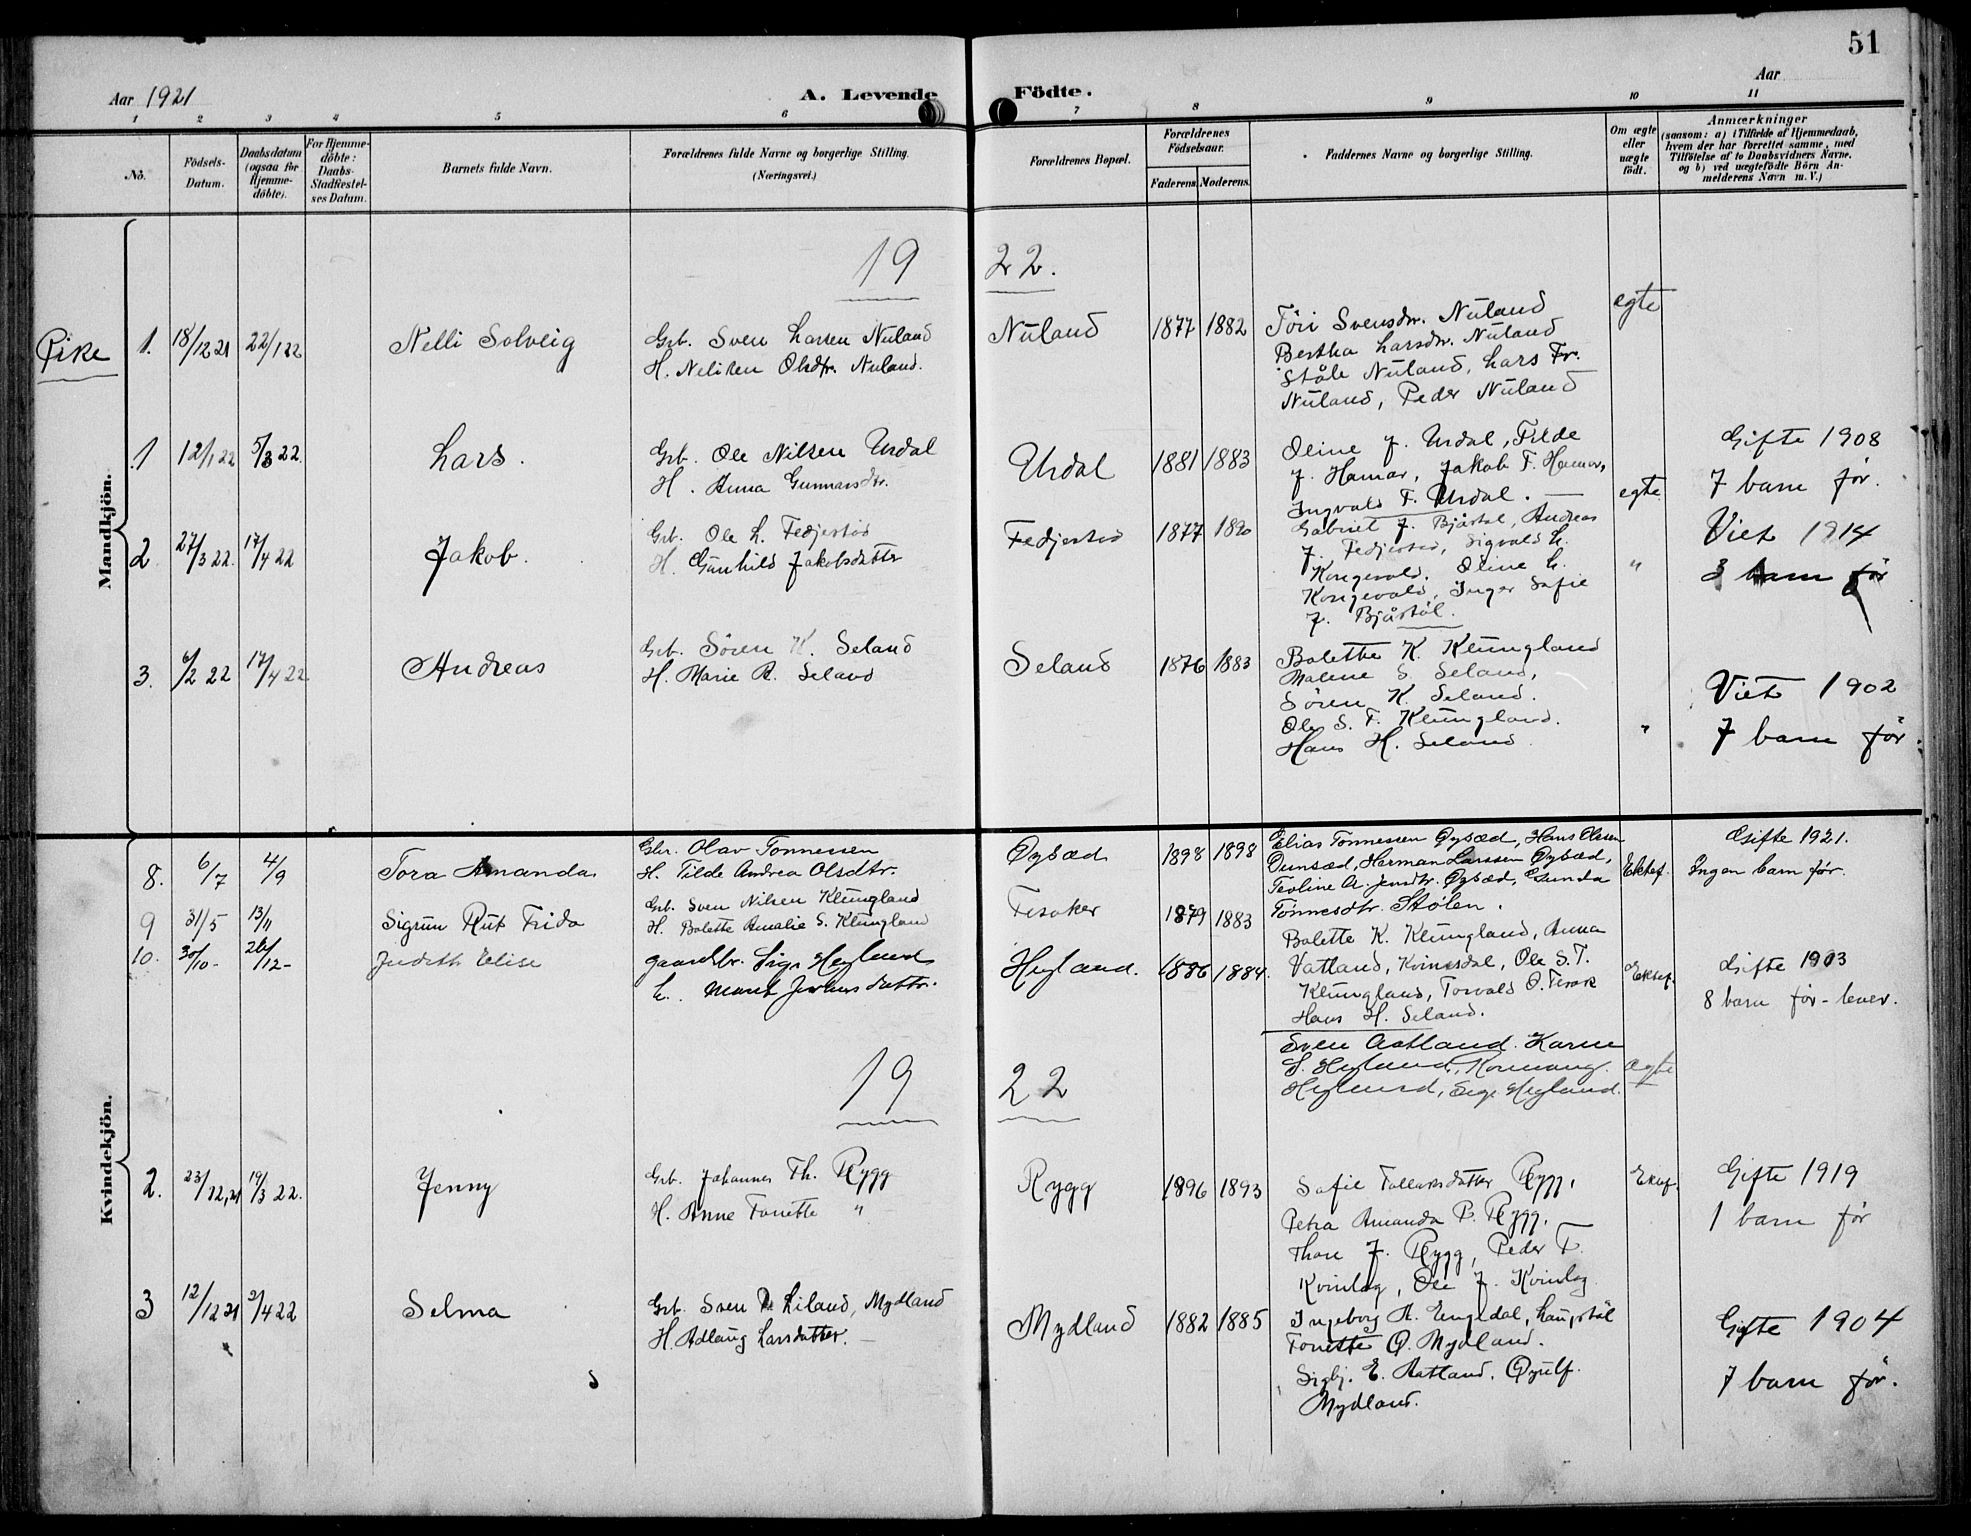 51
Aar 1921
A. Levende Födte.
Aar
1 2 3 4 5 6 7 8 9 10 11
No.
Födsels-Datum.
Daabsdatum (ogsaa for Hjemme-döbte).
For Hjemme-döbte: Daabs-Stadfæstel-ses Datum.
Barnets fulde Navn.
Forældrenes fulde Navne og borgerlige Stilling. (Næringsvei.)
Forældrenes Bopæl.
Forældrenes Födselsaar.
Faderens. Moderens.
Faddernes Navne og borgerlige Stilling.
Om ægte eller uægte födt.
Anmærkninger
(saasom: a) i Tilfælde af Hjemmedaab, hvem der har forrettet samme, med Tilföielse af to Daabsvidners Navne, og b) ved uægtefödte Börn An-melderens Navn m. V.)
19 22.
Pike 1. 18/12 21 22/1 22 Nelli Solveig
Grb. Sven Larsen Nuland
H. Nelisen Olsdtr. Nuland.
Nuland 1877 1882
Töri Svensdtr. Nuland
Bertha Larsdtr. Nuland
Ståle Nuland, Lars Fr.
Nuland, Peder Nuland
egte
Mandkjön.
1 12/1 22 5/3 22. Lars.
Grb. Ole Nilsen Urdal
H. Anna Gunnarsdtr.
Urdal 1881 1883
Oline J. Urdal, Tilde
J. Hamar, Jakob T. Hamar,
Ingvald T. Urdal.
egte
Gifte 1908
7 barn før.
2 27/3 22. 17/4 22 Jakob.
Grb. Ole L. Fedjestad
H. Gunhild Jakobsdatter
Fedjestad 1877 1890
Gabriel J. Bjårstøl, Andreas
J. Fedjestad, Sigvald L.
Kongevold, Oline L.
Kongevold, Inger Sofie
J. Bjårstøl.
"
Viet 1914
3 barn før
3. 6/2 22 17/4 22 Andreas
Grb. Sören K. Seland
H. Marie R. Seland
Seland 1876 1883
Bolette K. Klungland
Malene S. Seland,
Sören K. Seland.
Ole S. T. Klungland.
Hans H. Seland.
"
Viet 1902
7 barn før.
Kvindekjön.
8. 6/7 4/9 Tora Amanda
Gbr. Olav Tønnessen
H. Tilde Andrea Olsdtr.
Øysæd 1898 1898
Elias Tønnessen Øysæd, Hans Olesen
Dunsæd, Herman Larssen Øysæd,
Teoline A. Jensdtr. Øysæd, Gunda
Tønnesdtr. Stølen.
Ektef.
Gifte 1921.
Ingen barn før.
9 31/5 13/11 Sigrun Rut Frida
Grb. Sven Nilsen Klungland
H. Bolette Amalie S. Klungland
Fesoker 1879 1883
Bolette K. Klungland, Anna
Vatland, Kvinesdal, Ole S. T.
Klungland, Torvald O.
Hans H. Seland.
Ektef.
Gifte 1903
8 barn før - lever.
10. 30/10- 26/12- Judith Elise
gaardbr. Sigv. Hegland
Hegland. 1886 1884.
Sven Aatland. Karen
S. Hegland,
Hegland, Sigv. Hegland.
ægte
19 22
2. 23/12,21 19/3 22. Jenny
Grb. Johannes Th. Rygg
H. Anne Tonette "
Rygg 1896 1893
Sofie Tallaksdatter Rygg,
Petra Amanda P. Rygg,
Thore J. Rygg, Peder T.
Kvinlog, Ole J. Kvinlog.
Ektef.
Gifte 1919
1 barn før
3 12/12 21 2/4 22 Selma
Grb. Sven P. Liland, Mydland
H. Adlaug Larsdatter.
Mydland 1882 1885
Ingeborg A. Engedal,
Tonette O. Mydland.
Sigbj. E. Aatland.
Mydland.
Gifte 1904
7 barn før.